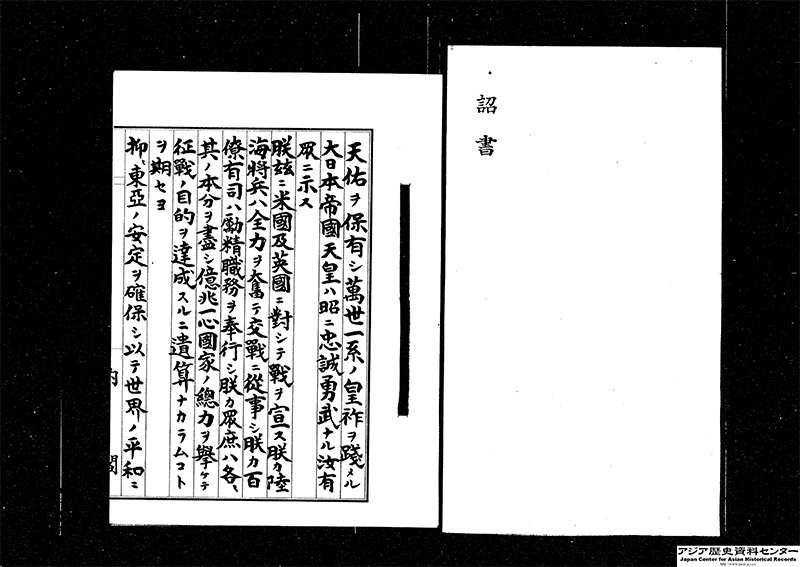 詔書
天佑ヲ保有シ萬世一系ノ皇祚ヲ踐メル
大日本帝國天皇ハ昭ニ忠誠勇武ナル汝有
眾ニ示ス
朕玆ニ米國及英國ニ對シテ戰ヲ宣ス朕カ陸
海將兵ハ全力ヲ奮テ交戰ニ從事シ朕カ百
僚有司ハ勵精職務ヲ奉行シ朕カ眾庶ハ各〻
其ノ本分ヲ盡シ億兆一心國家ノ總力ヲ擧ケテ
征戰ノ目的ヲ達成スルニ遺算ナカラムコト
ヲ期セヨ
抑〻東亞ノ安定ヲ確保シ以テ世界ノ平和ニ
内閣
アジア歴史資料センター
Japan Center for Asian Historical Records